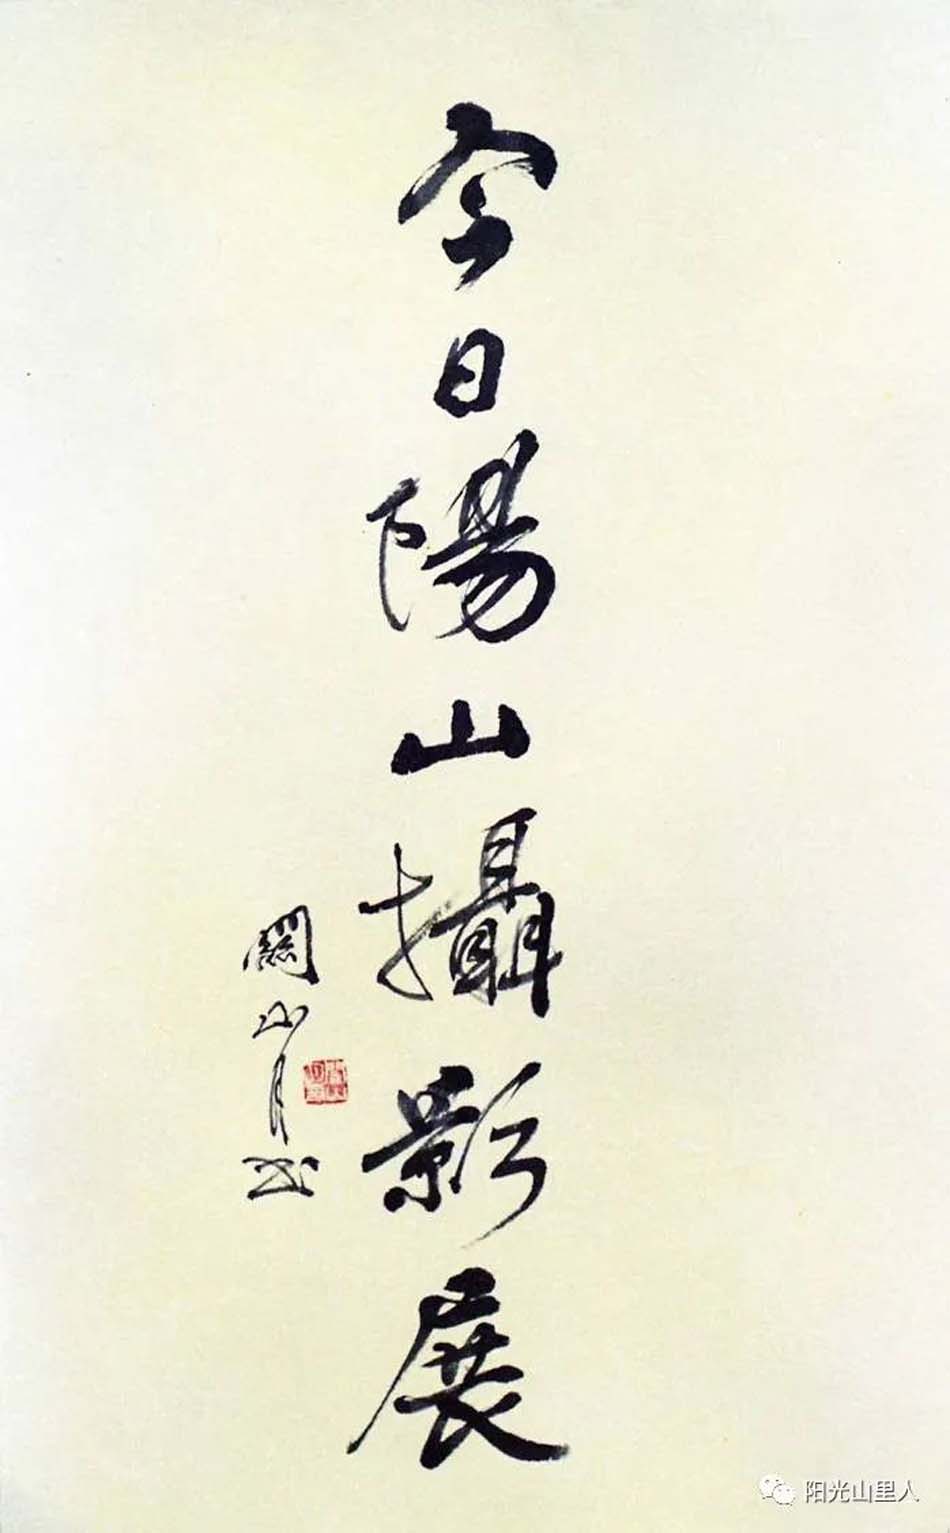 今日陽山攝影展
關山月书
阳光山里人